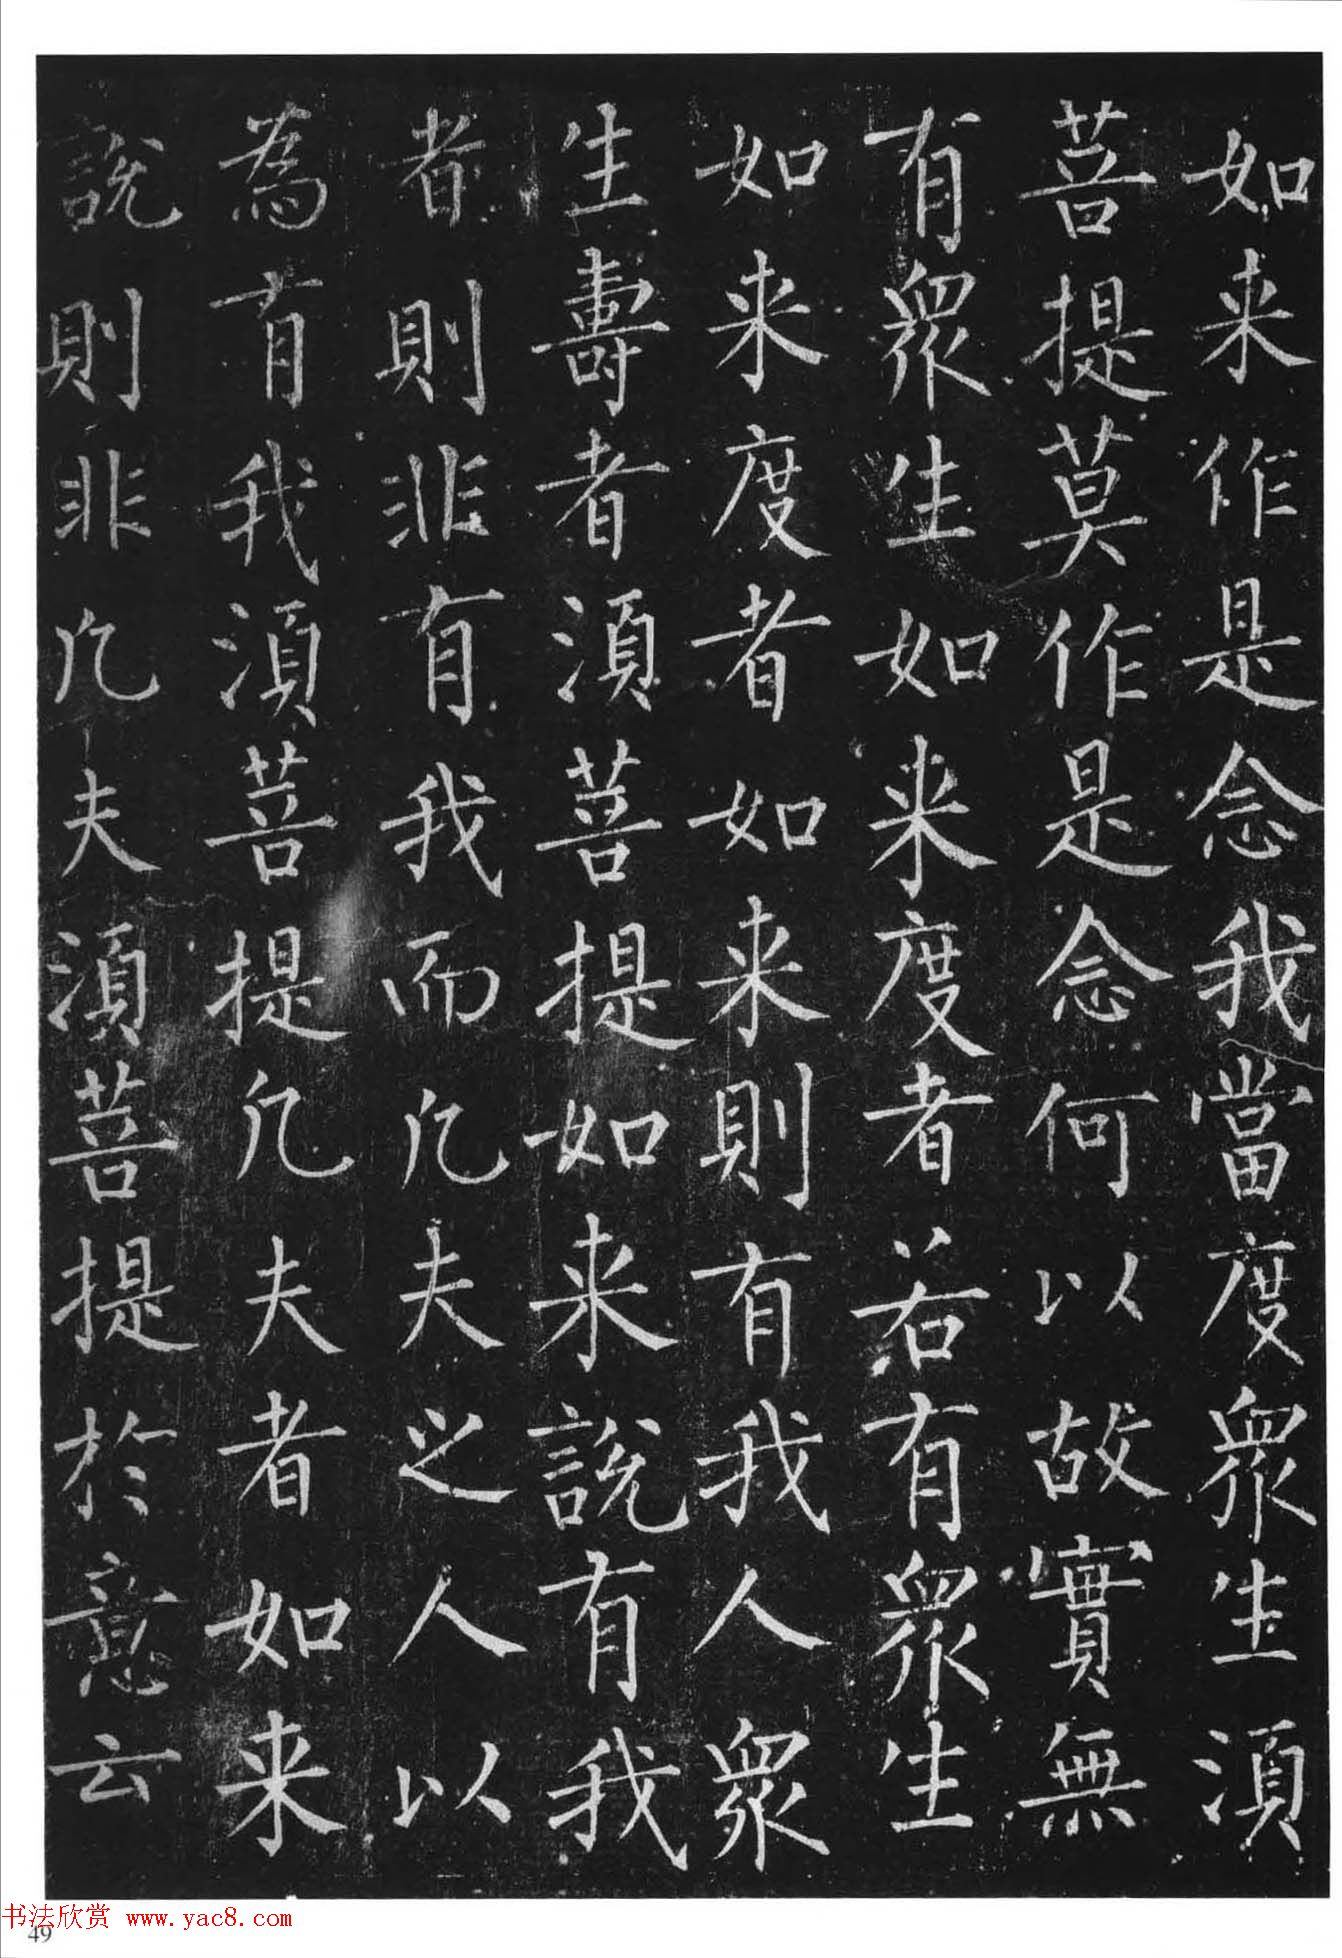 如来作是念我當度衆生湏
菩提莫作是念何以故實無
有衆生如来度者若有衆生
如来度者如来則有我人衆
生壽者湏菩提如来說有我
者則非有我而凡夫之人以
為有我湏菩提凡夫者如来
說則非凡夫湏菩提於意云
书法欣赏 www.yac8.com
49